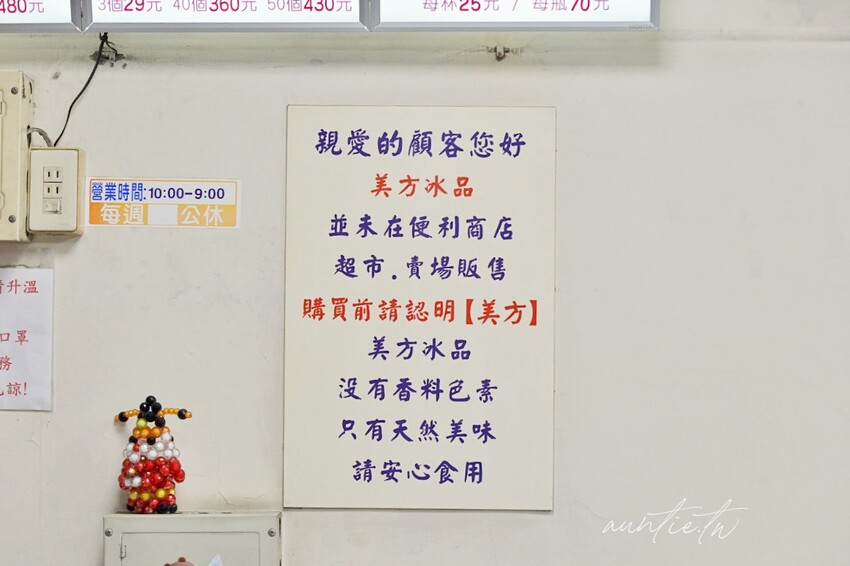 480元
3個29元 40個360元 50個430元
每杯25元 / 每瓶70元
親愛的顧客您好
美方冰品
並未在便利商店
超市.賣場販售
購買前請認明【美方】
美方冰品
沒有香料色素
只有天然美味
請安心食用
營業時間:10:00-9:00
每週 公休
升溫
口罩
務
諒!
auntie.tw